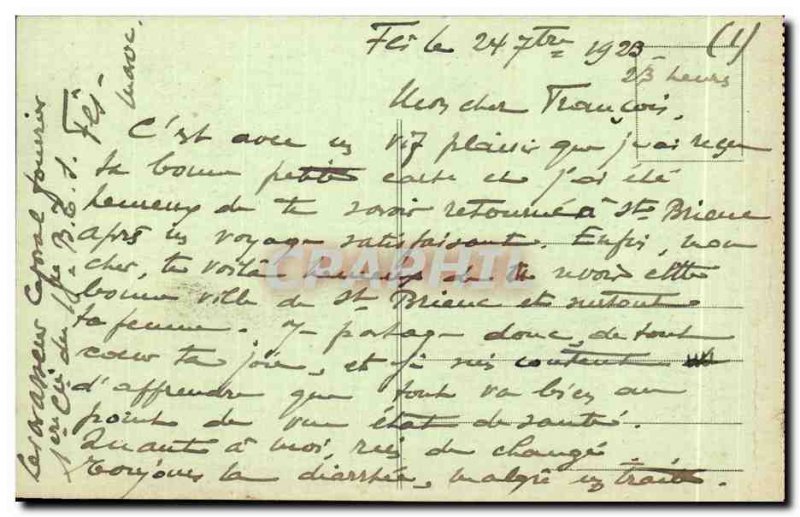 Fès le 24 7bre 1923 (1)
23 heures
Mon cher François,
C'est avec un vif plaisir que j'ai reçu
ta bonne petite carte et j'ai été
heureux de te savoir retourné à St Brieuc
après un voyage satisfaisant. Enfin, mon
cher, te voilà heureux de te revoir cette
bonne ville de St Brieuc et surtout
ta femme. Je partage donc, de tout
cœur ta joie, et je suis content
d'apprendre que tout va bien au
point de vue état de santé.
Quant à moi, rien de changé.
Toujours la diarrhée, malgré un
Levasseur Caporal fourrier
1ère Cie du B.E.S. Fès -
Maroc.
CPAPHIL